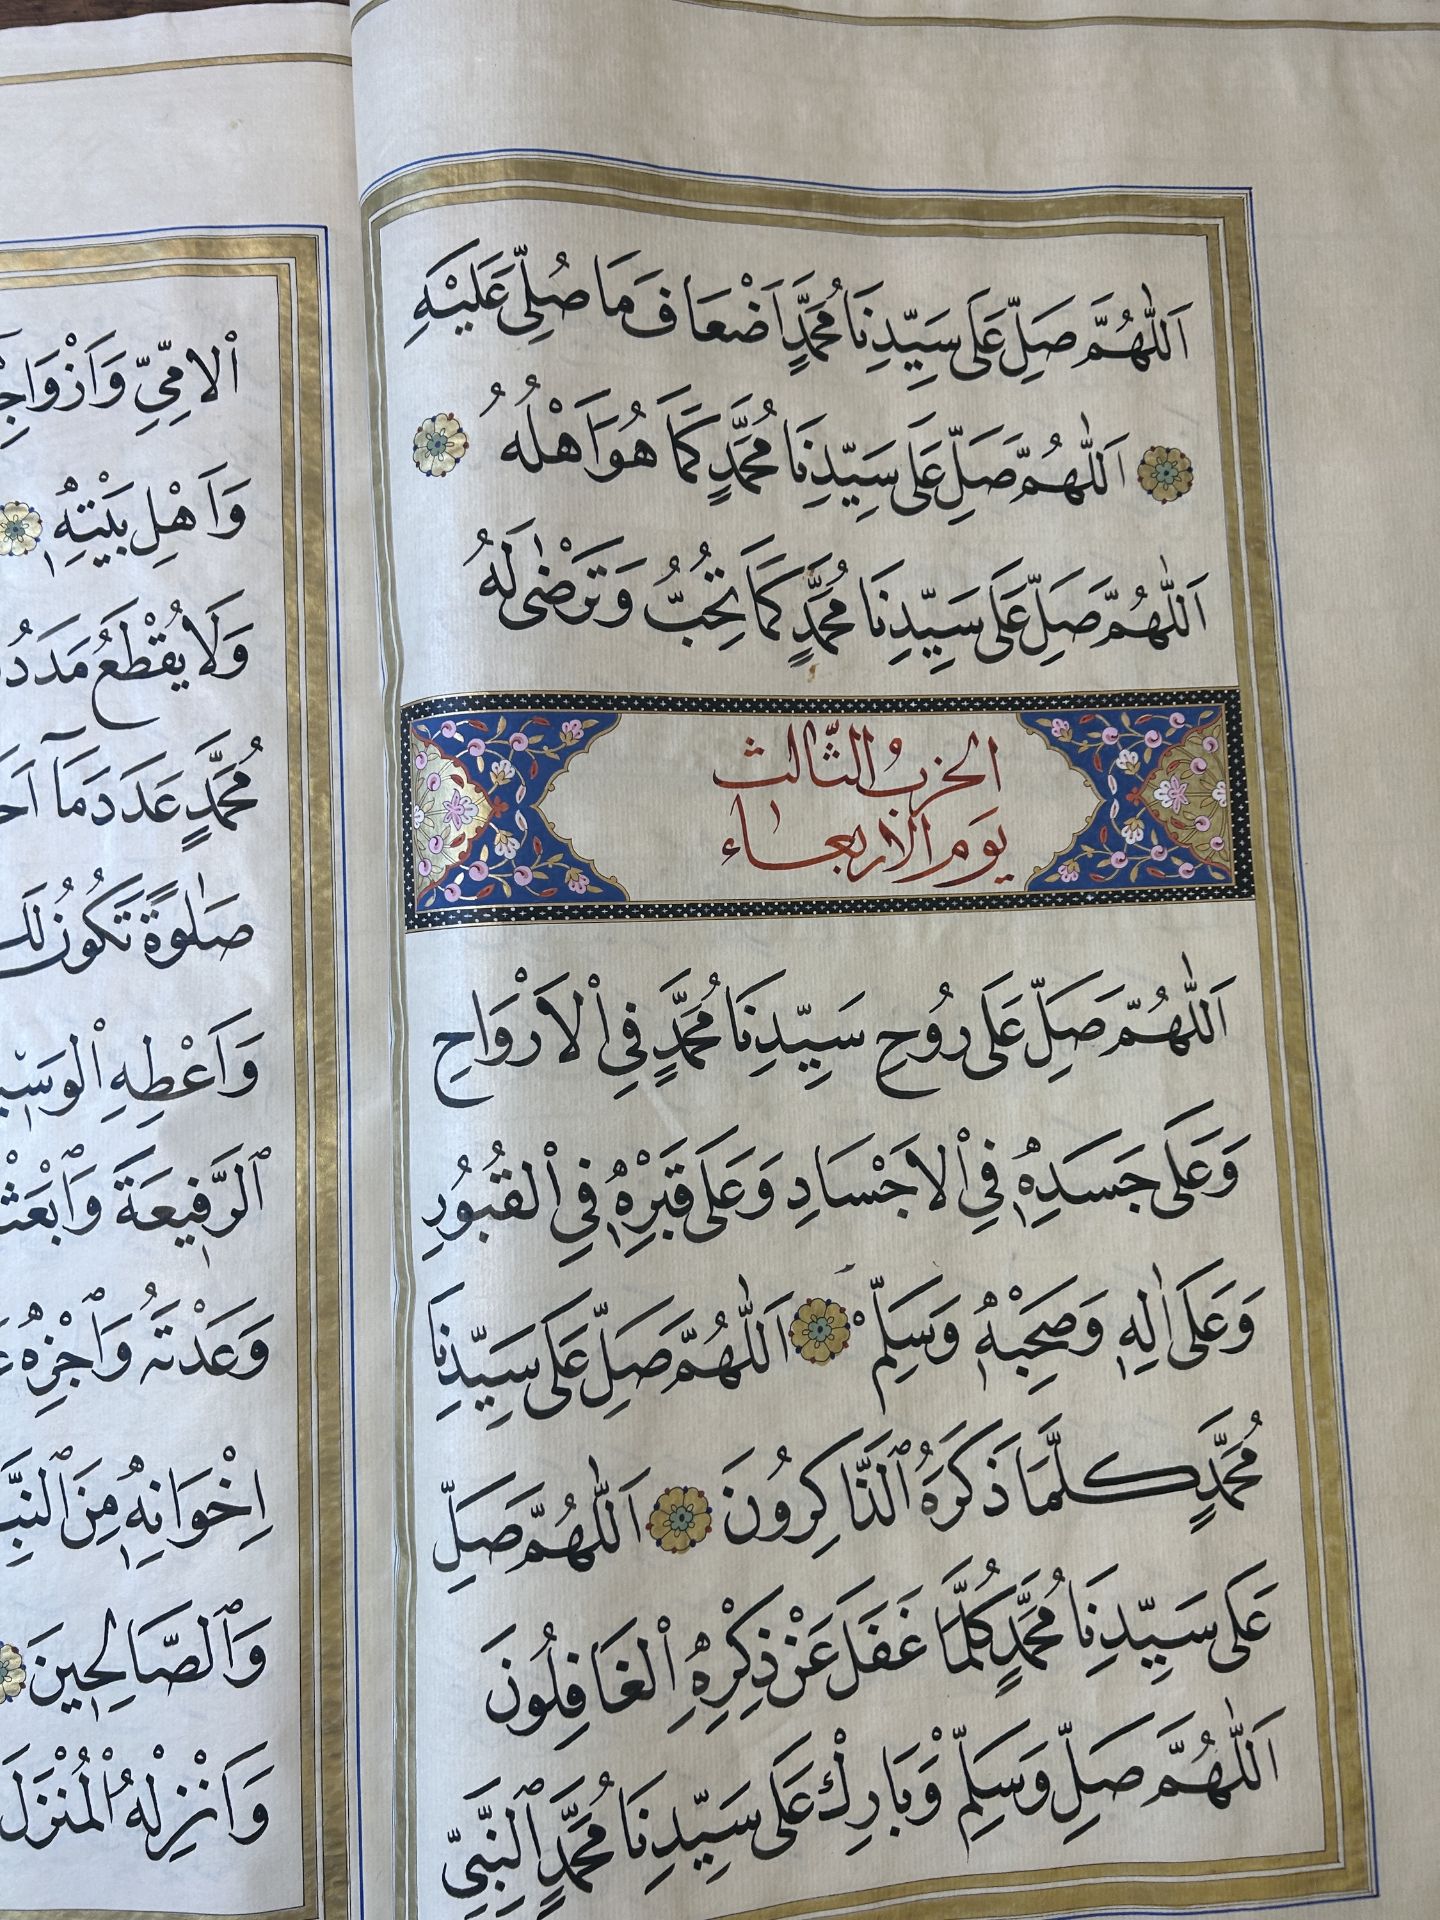 اَللّٰهُمَّ صَلِّ عَلَى سَيِّدِنَا مُحَمَّدٍ اَضْعَافَ مَا صُلِّىَ عَلَيْهِ
اَللّٰهُمَّ صَلِّ عَلَى سَيِّدِنَا مُحَمَّدٍ كَمَا هُوَ اَهْلُهُ
اَللّٰهُمَّ صَلِّ عَلَى سَيِّدِنَا مُحَمَّدٍ كَمَا تُحِبُّ وَتَرْضٰى لَهُ
الحزبُ الثّالث
يَوم الاربعاء
اَللّٰهُمَّ صَلِّ عَلَى رُوُحِ سَيِّدِنَا مُحَمَّدٍ فِي اْلاَرْوَاحِ
وَعَلَى جَسَدِهِ فِي اْلاَجْسَادِ وَعَلَى قَبْرِهِ فِي اْلقُبُورِ
وَعَلَى اٰلِهِ وَصَحْبِهِ وَسَلِّمْ اَللّٰهُمَّ صَلِّ عَلَى سَيِّدِنَا
مُحَمَّدٍ كلَّمَا ذَكَرَهُ ٱلذَّاكِرُونَ اَللّٰهُمَّ صَلِّ
عَلَى سَيِّدِنَا مُحَمَّدٍ كُلَّمَا غَفَلَ عَنْ ذِكْرِهِ اْلغَافِلُونَ
اَللّٰهُمَّ صَلِّ وَسَلِّمْ وَبَارِكْ عَلَى سَيِّدِنَا مُحَمَّدٍ ٱلنَّبِيِّ
ٱلامِّيِّ
وَاَهْلِ بَيْتِهِ
وَلَا يُقْطَعُ
مُحَمَّدٍ عَدَدَ مَآ
صَلٰوةً تَكُونُ
وَاَعْطِهِ
ٱلرَّفِيعَةَ
وَعَدْتَهُ وَٱجْزِهِ
اِخْوَانِهِ مِنَ
وَٱلصَّالِحِينَ
وَاَنْزِلْهُ اْلمُنْزَلَ